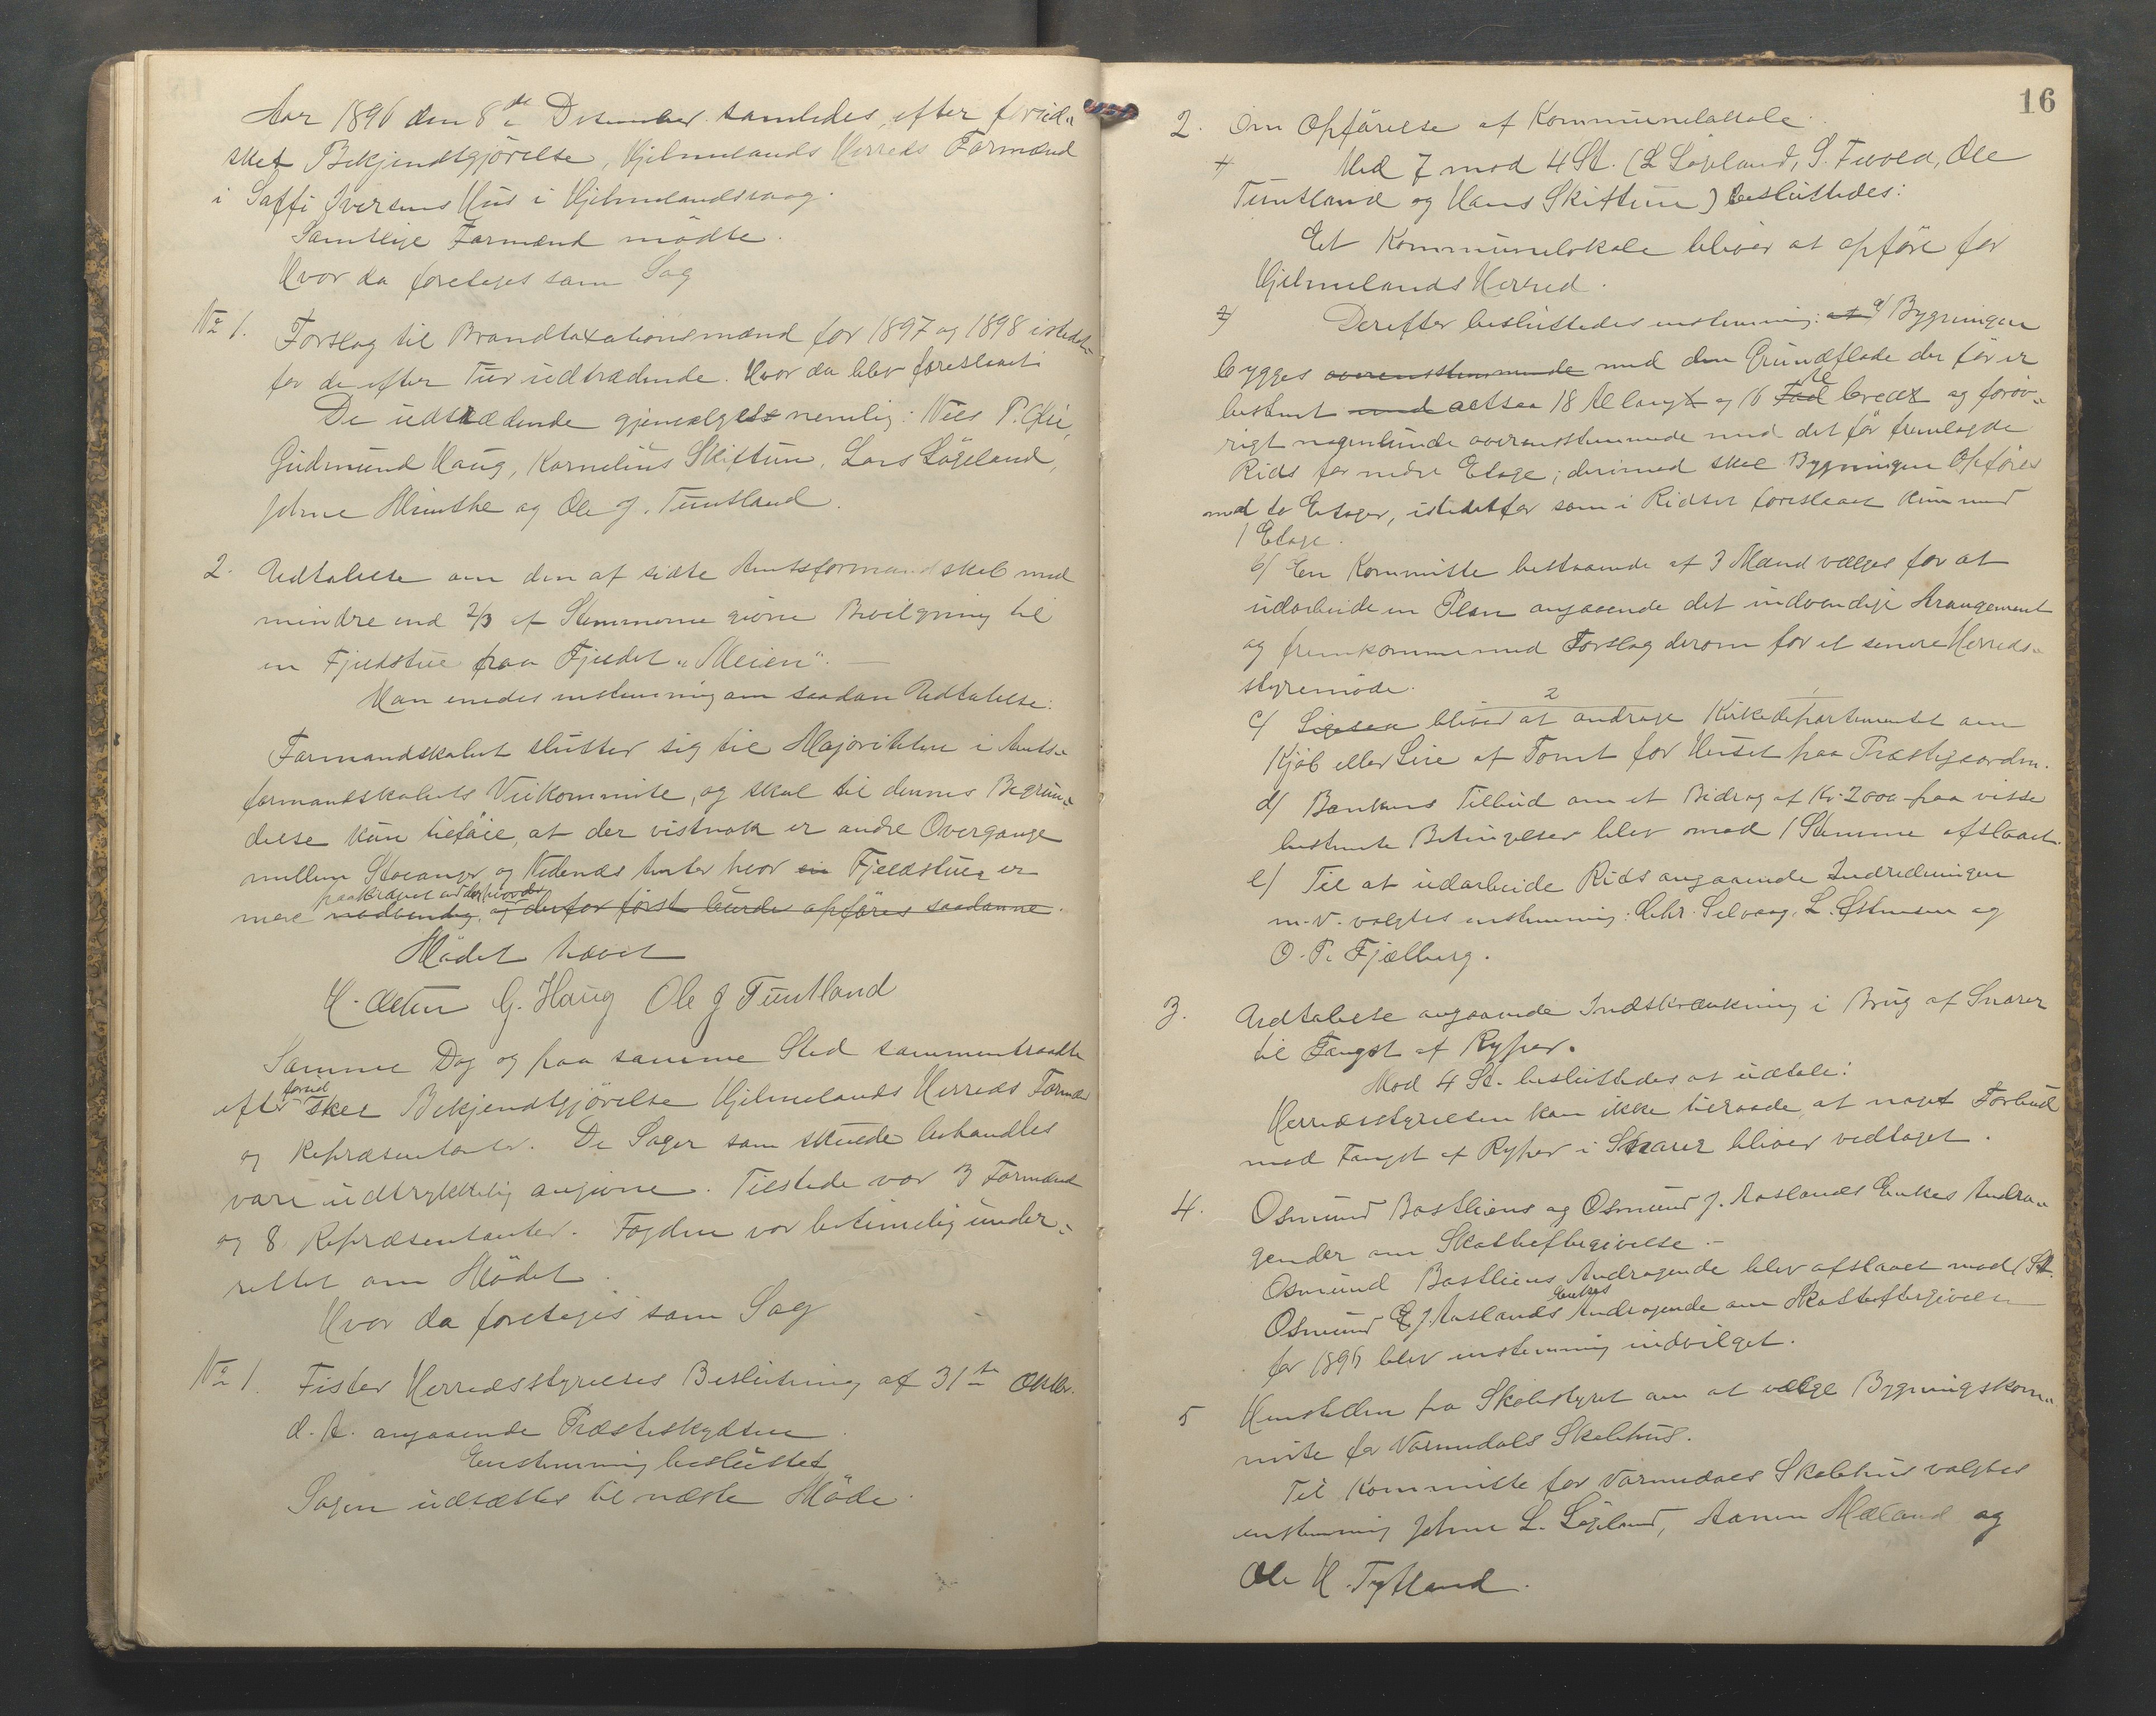 Aar 1896 den 8de Desember samledes, efter forud„
sket Bekjendtgjörelse, Hjelmelands Herreds Formænd
i Saffi Iversens Hus i Hjelmelandsvaag.
Samtlige Formænd mödte.
Hvor da foretoges som Sag
No 1. Forslag til Brandtaxationsmænd for 1897 og 1898 istedet„
for de efter Tur udtrædende. Hvor da blev foreslaaet:
De udtrædende gjenvalgtes nemlig: Niels P.
Gudmund Haug, Kornelius Skiftun, Lars Lögeland,
Johne og Ole J. Tuntland.
2. Udtalelse om den af sidte Amtsformandskab med
mindre end 2/3 af Stemmerne givne Bevilgning til
en Fjeldstue paa Fjeldet „Meien“. —
Man enedes enstemmig om saadan Udtalelse:
Formandskabet slutter sig til Majoriteten i Amts„
formandskabets Veikommite, og skal til dennes Begrun„
delse kun tilföie, at der vistnok er andre Overgange
mellem Stavanger og Nedenæs Amter hvor en Fjeldstue er
paakrævet end den
mere nödvendig, og derfor först burde opföres saadanne.
Mödet hævet
H. G. Haug Ole J Tuntland
Samme Dag og paa samme Sted sammentraadte
forud
efter skel Bekjendtgjörelse Hjelmelands Herreds Formænd
og Repræsentanter. De Sager som skulde behandles
vare udtrykkelig angivne. Tilstede var 3 Formænd
og 8 Repræsentanter. Fogden var betimelig under„
rettet om Mödet.
Hvor da foretoges som Sag
No 1. Fister Herredsstyrelses Beslutning af 31te Oktbr.
d. A. angaaende Præsteskydsen.
Enstemmig besluttet
Sagen udsættes til næste Möde.
16
2. Om Opförelse af Kommunelokale.
Med 7 mod 4 St. (L Lögeland, S. Tveed, Ole
Tuntland og Hans Skiftun) besluttedes:
Et Kommunelokale bliver at opföre for
Hjelmelands Herred.
Derefter besluttedes enstemmig: at a/ Bygningen
bygges overensstemmende med den Grundflade der för er
bestemt med altsaa 18 Al langt og 16 Al bredt og forøv„
rigt nogenlunde overensstemmende med det för fremlagde
Rids for nedre Etage; derimod skal Bygningen Opföres
med to Etager, istedetfor som i Ridset foreslaaet kun med
1 Etage.
b/ En Kommitte bestaaende af 3 Mænd vælges for at
udarbeide en Plan angaaende det indvendige Arangement
og fremkomme med Forslag derom for et senere Herreds„
styremöde.
2
c/ Ligesaa bliver at andrage Kirkedepartementet om
Kjöb eller Leie af Tomt for Huset paa Præstegaarden.
d/ Bankens Tilbud om et Bidrag af Kr. 2000 paa visse
bestemte Betingelser blev mod 1 Stemme afslaaet.
e/ Til at udarbeide Rids angaaende Indredningen
m.v. valgtes enstemmig: Chr. Selvaag, L. Østhusen og
O. P. Fjælberg.
3. Udtalelse angaaende Indskrænkning i Brug af Snarer
til Fangst af Ryper.
Mod 4 St. besluttedes at udtale:
Herredsstyrelsen kan ikke tilraade, at noget Forbud
mod Fangst af Ryper i Snarer bliver vedtaget.
4. Osmund Bastliens og Osmund J. Aaslands Enkes Andra„
gender om Skatteeftergivelse. —
Osmund Bastliens Andragende blev afslaaet mod 1 St.
Enkes
Osmund J. Aaslands Andragende om Skatteeftergivelse
for 1896 blev enstemmig indvilget.
5 Henstillen fra Skolestyret om at vælge Bygningskom„
mite for Vormedals Skolehus.
Til Kommitte for Vormedals Skolehus valgtes
enstemmig Johne L. Lögeland, Aanen Mæland og
Ole H. Tytland.